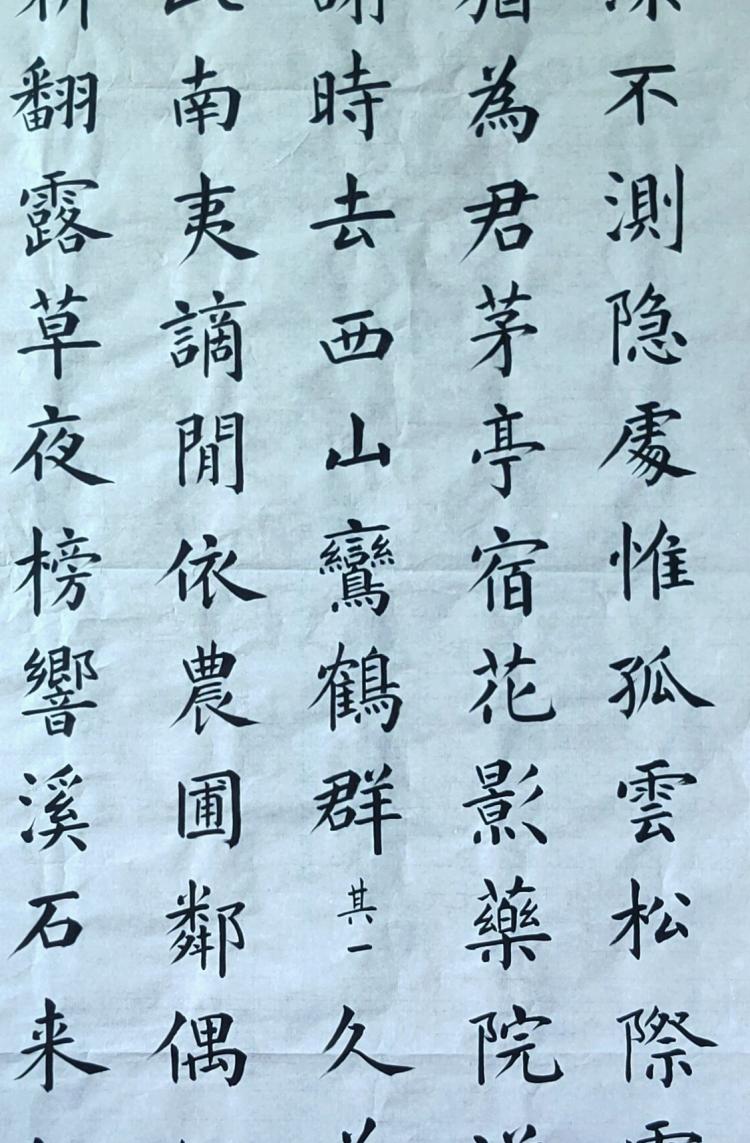 不測隐處惟孤雲松際
為君茅亭宿花影藥院
時去西山鸞鶴群其一久
南夷謫閒依農圃鄰偶
翻露草夜榜響溪石来